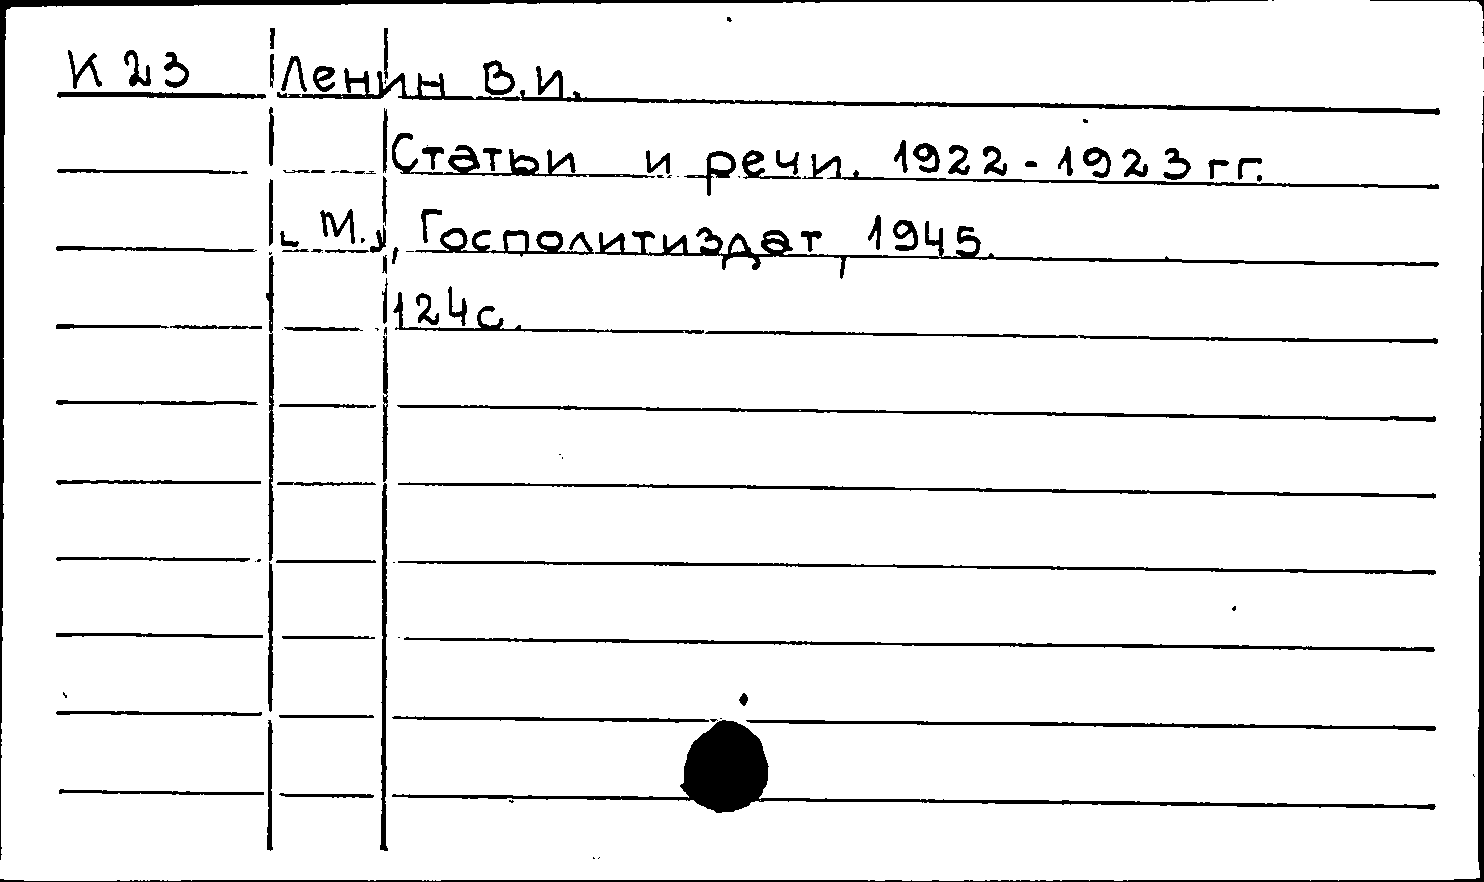 К 23 Ленин В.И.
Статьи и речи. 1922-1923 гг.
[М.], Госполитиздат, 1945.
124с.